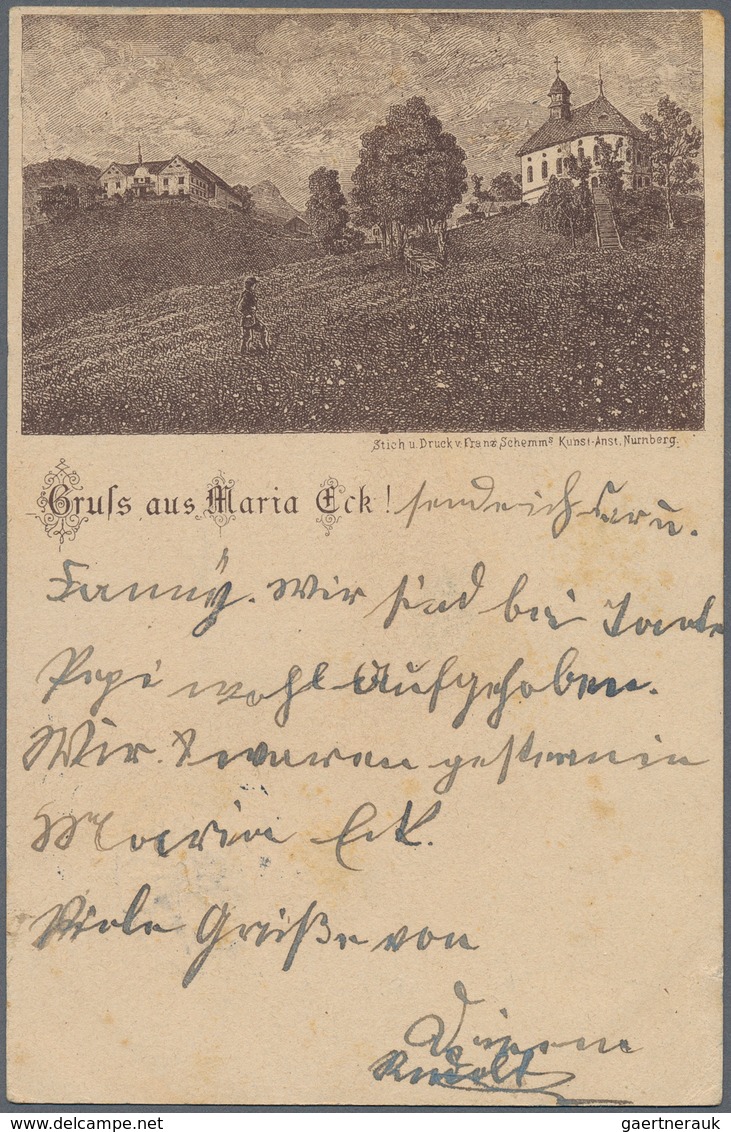 Stich u. Druck v. Franz Schemms Kunst-Anst. Nürnberg.
Gruss aus Maria Eck! sendet euch u.
Fanny. Wir sind bei Tante
Pepi wohl Aufgehoben.
Wir waren gestern in
Maria Eck.
Viele Grüße von
Rudolf
gaertnerauk